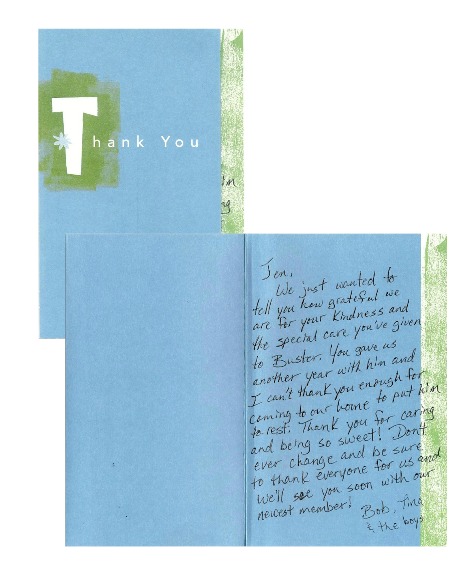 Thank You
im
ng
Jen,
We just wanted to
tell you how grateful we
are for your kindness and
the special care you've given
to Buster. You gave us
another year with him and
I can't thank you enough for
coming to our home to put him
to rest. Thank you for caring
and being so sweet! Don't
ever change and be sure
to thank everyone for us and
we'll see you soon with our
newest member!
Bob, Tina
& the boys